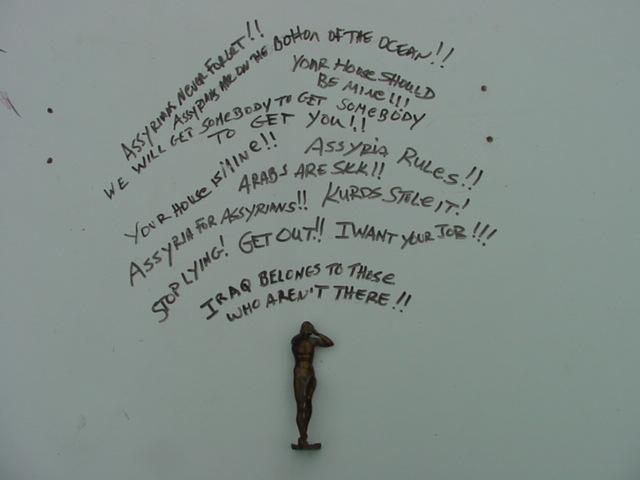 ASSYRIANS NEVER FORGET!!
ASSYRIANS ARE ON THE BOTTOM OF THE OCEAN!!
YOUR HOUSE SHOULD
BE MINE!!!
WE WILL GET SOMEBODY TO GET SOMEBODY
TO GET YOU!!
YOUR HOUSE IS MINE!!
ASSYRIA RULES!!
ARABS ARE SICK!!
ASSYRIA FOR ASSYRIANS!! KURDS STOLE IT!
STOP LYING! GET OUT!! I WANT YOUR JOB!!!
IRAQ BELONGS TO THOSE
WHO AREN'T THERE!!